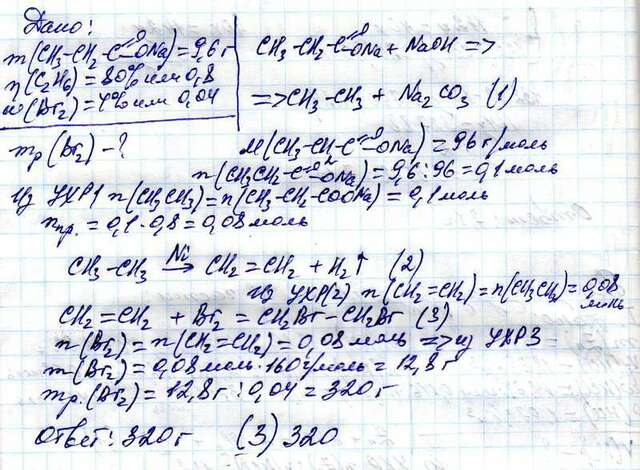 Дано:
m(CH3-CH2-C=OONa)=9,6г
η(C2H6)=80% или 0,8
ω(Br2)=4% или 0,04
mр(Br2)-?
CH3-CH2-C=OONa+NaOH=>
=>CH3-CH3 + Na2CO3 (1)
M(CH3-CH-C=OONa)=96г/моль
n(CH3CH2-C=OONa)=9,6:96=0,1моль
Из УХР1 n(CH3CH3)=n(CH3-CH2-COONa)=0,1моль
nпр.=0,1·0,8=0,08моль
CH3-CH3 Ni→ CH2=CH2 + H2↑ (2)
Из УХР(2) n(CH2=CH2)=n(CH3CH3)=0,08 моль
CH2=CH2 + Br2 = CH2Br-CH2Br (3)
n(Br2)=n(CH2=CH2)=0,08моль =>из УХР3
m(Br2)=0,08моль·160г/моль=12,8г
mр.(Br2)=12,8г:0,04=320г
Ответ: 320г (3) 320